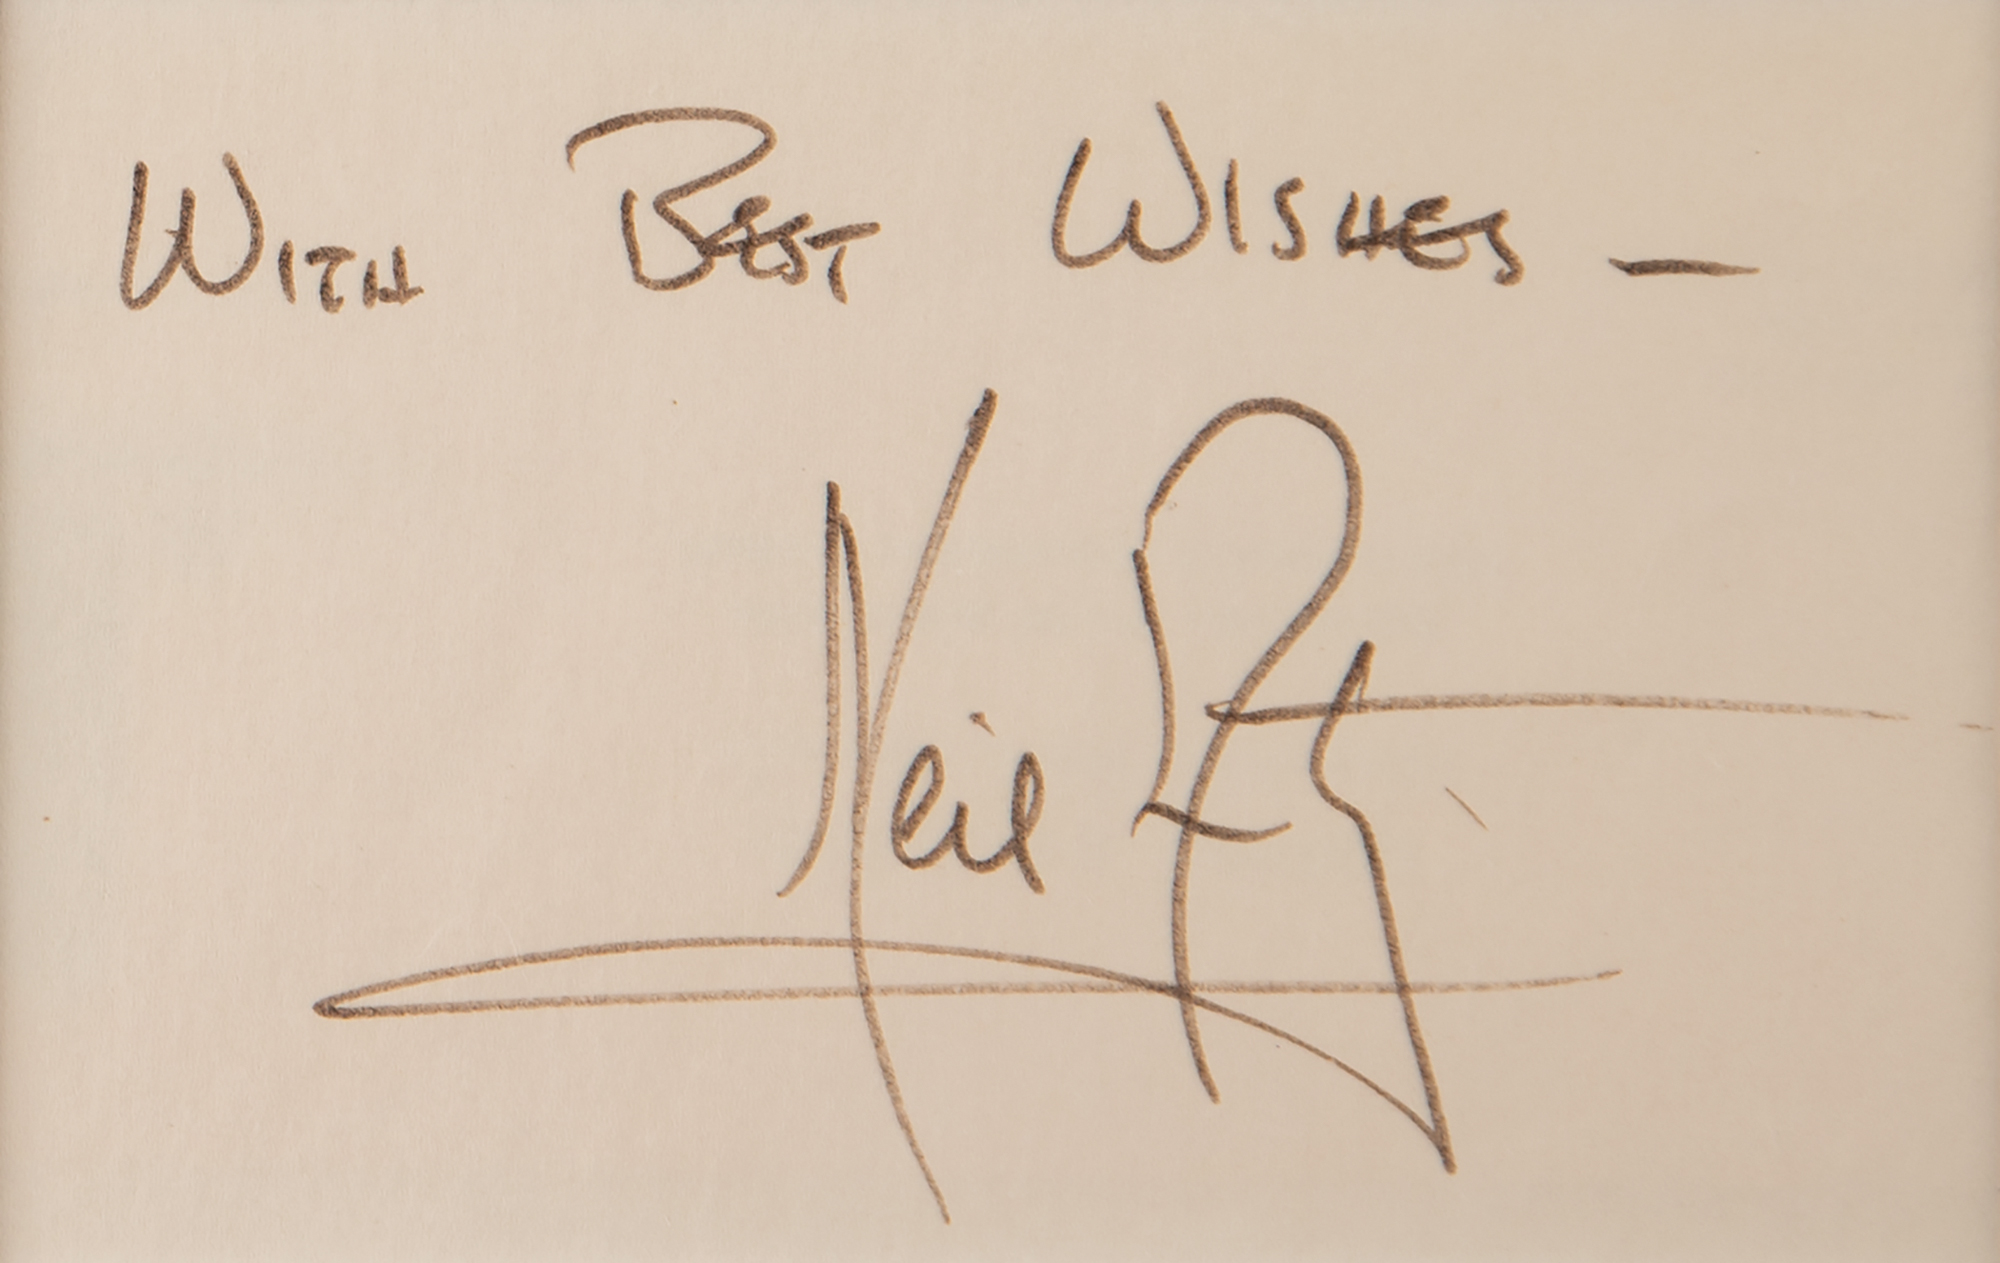 With Best Wishes —
Neil